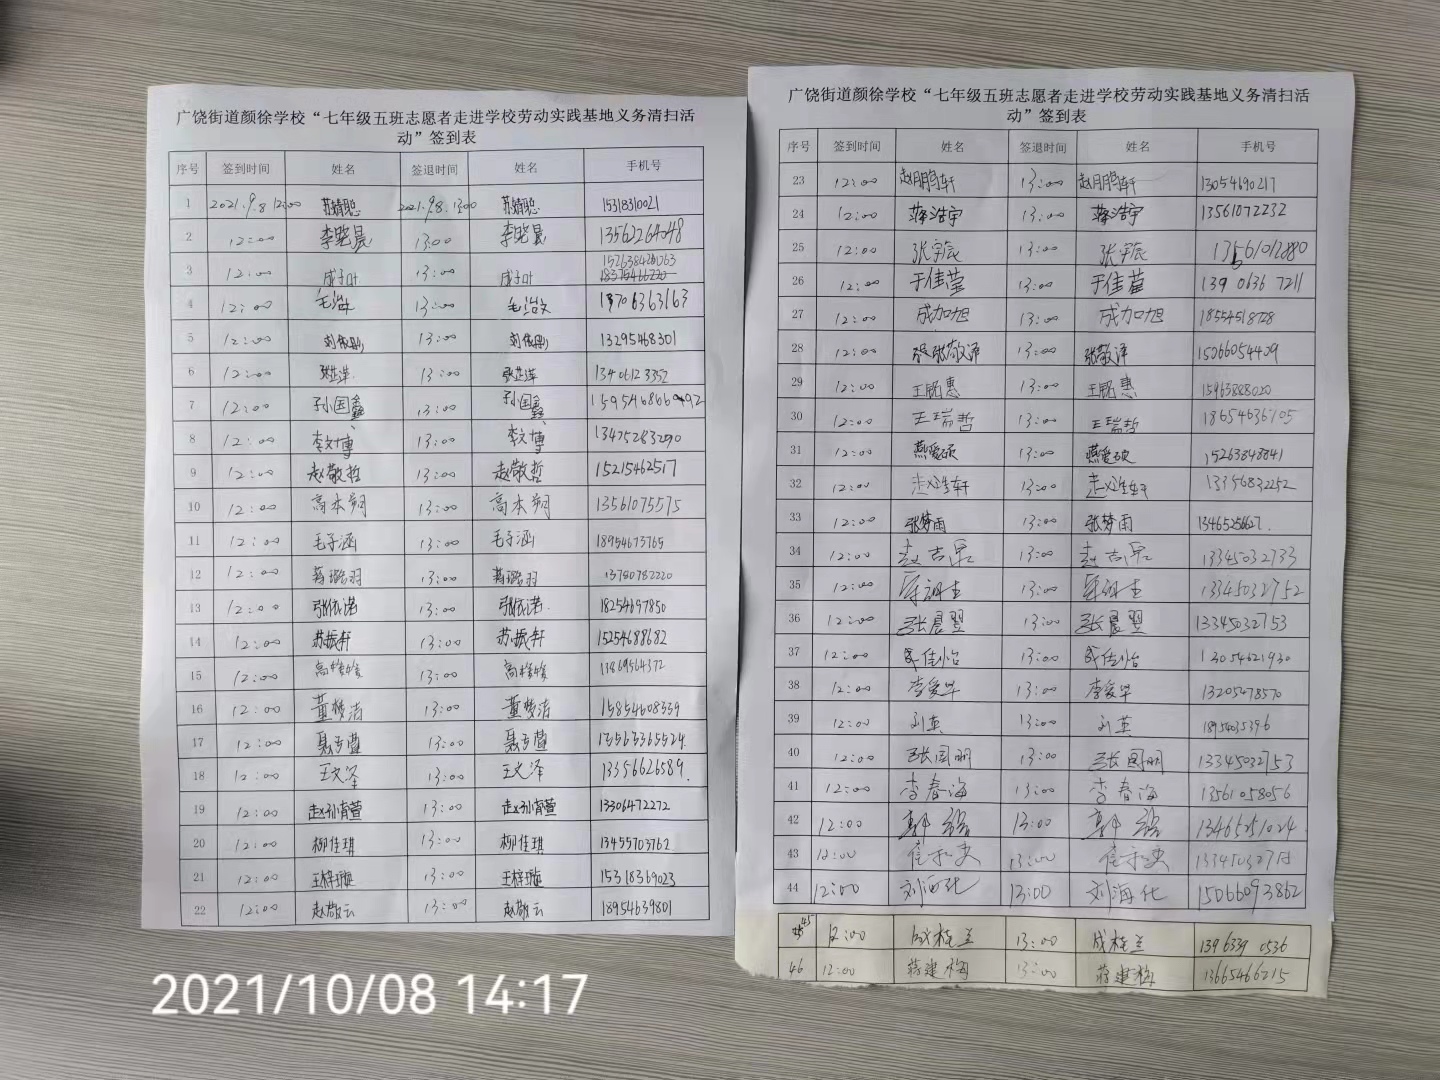 广饶街道颜徐学校“七年级五班志愿者走进学校劳动实践基地义务清扫活
动”签到表
序号 签到时间 姓名 签退时间 姓名 手机号
1 2021.9.8 12:00 苏婧聪 2021.9.8.13:00 苏婧聪 15318310021
2 12:00 李晓晨 13:00 李晓晨 13562264048
3 12:00 成子叶 13:00 成子叶
4 12:00 13:00 13706363163
5 12:00 13:00 13295468301
6 12:00 张芷洋 13:00 张芷洋 13406123352
7 12:00 孙国鑫 13:00 孙国鑫
8 12:00 李文博 13:00 李文博 13475283290
9 12:00 赵敬哲 13:00 赵敬哲 15215462517
10 12:00 高本朔 13:00 高本朔 13561075575
11 12:00 毛子涵 13:00 毛子涵 18954673765
12 12:00 蒋璐羽 13:00 蒋璐羽 13780782220
13 12:00 张依诺 13:00 张依诺. 18254697850
14 12:00 苏振轩 13:00 苏振轩 15254688682
15 12:00 13:00
16 12:00 董梦洁 13:00 董梦洁 15854608339
17 12:00 聂子萱 13:00 聂子萱 13563365524
18 12:00 王文泽 13:00 王文泽 13356626589.
19 12:00 赵孙宵萱 13:00 赵孙宵萱 13306472272
20 12:00 柳佳琪 13:00 柳佳琪 13455703762
21 12:00 王梓璇 13:00 王梓璇 15318369023
22 12:00 赵敬云 13:00 赵敬云 18954639801
广饶街道颜徐学校“七年级五班志愿者走进学校劳动实践基地义务清扫活
动”签到表
序号 签到时间 姓名 签退时间 姓名 手机号
23 12:00 赵鹏轩 13:00 赵鹏轩 13054690217
24 12:00 蒋浩宇 13:00 蒋浩宇 13561072232
25 12:00 张宇辰 13:00 张宇辰
26 12:00 于佳莹 13:00 于佳莹 139 0636 7211
27 12:00 成加旭 13:00 成加旭 18554518728
28 12:00 张敬泽 13:00 张敬泽 15066054409
29 12:00 王铭惠 13:00 王铭惠 15963888020
30 12:00 王瑞哲 13:00 王瑞哲 18654636705
31 12:00 燕爱硕 13:00 燕爱硕 15263848841
32 12:00 赵浩轩 13:00 赵浩轩 13356832252
33 12:00 张梦雨 13:00 张梦雨 13465256627.
34 12:00 13:00 13345032733
35 12:00 13:00 13345032752
36 12:00 张晨翌 13:00 张晨翌 13345032753
37 12:00 成佳怡 13:00 成佳怡 13054621930
38 12:00 李爱华 13:00 李爱华 13205478570
39 12:00 刘英 13:00 刘英 18954035396
40 12:00 张国明 13:00 张国明 13345032753
41 12:00 李春海 13:00 李春海 13561058056
42 12:00 13:00 13465251024
43 12:00 13:00
44 12:00 刘海化 13:00 刘海化 15066093862
45 12:00 成桂兰 13:00 成桂兰 1396339 0536
46 12:00 蒋建梅 13:00 蒋建梅 13665466215
2021/10/08 14:17